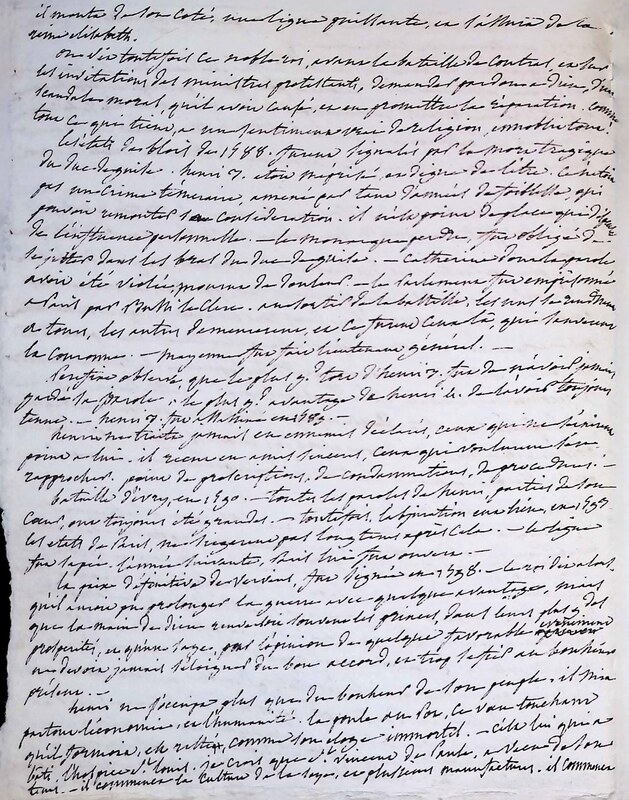 il monta de son coté, une ligue puissante, et s'assura de la
reine elisabeth.
On vit toutefois ce noble roi, avant la bataille de Coutras, et sur
les invitations des ministres protestants, demander pardon a dieu, d'un
scandale moral, qu'il avoit causé, et en promettre la reparation. comme
tout ce qui tient, a un sentiment vrai de religion, ennoblit tout!
les états de blois de 1588. furent signalés par la mort tragique
du duc de guise. henri 3. etoit meprisé, et digne de l'être. Ce n'étoit
pas un crime temeraire, amené par tant d'années de foiblesse, qui
pouvoit remonter sa consideration. il n'est point de place qui dispense
de l'influence personnelle. — le monarque perdu, fut obligé de
se jetter dans les bras du duc de guise. — Catherine dont la parole
avoit été violée, mourut de douleur. — le parlement fut emprisonné
a Paris par Bussi le Clerc. au sortir de la bastille, les uns se rendirent
a tours, les autres demeurerent, et ce furent ceux là, qui sauverent
la couronne. — mayenne fut fait lieutenant général. —
Perefixe observe, que le plus gd tort d'henri 3. fut de n'avoir jamais
gardé sa parole, le plus gd avantage de henri 4. de l'avoir toujours
tenue. — henri 3. fut assassiné en 1589. —
henri ne traita jamais en ennemis declarés, ceux qui ne s'unirent
point a lui. il reçut en amis sinceres, ceux qui voulurent se
rapprocher. point de proscriptions, de condamnations, de procedures. —
bataille d'ivry, en 1590. — toutes les paroles de henri, parties de son
coeur, ont toujours été grandes. — toutefois, l'abjuration eut lieu, en 1593
les etats de Paris, ne siegerent pas longtems après cela. — la ligue
fut sapée. l'année suivante, Paris lui fut ouvert. —
la paix definitive de Vervins, fut signée en 1598. — le roi dit alors
qu'il auroit pu prolonger la guerre avec quelque avantage, mais
que la main de dieu renverse souvent les princes, dans leurs plus gdes
prosperités, et qu'un sage, par l'opinion de quelque favorable evenement
ne devoit jamais s'eloigner du bon accord, et trop se fier au bonheur
présent. —
henri ne s'occupa plus que du bonheur de son peuple. il mit
partout l'économie, et l'humanité. la poule au pot, ce voeu touchant
qu'il forma, est resté, comme son eloge immortel. — c'est lui qui a
bati, l'hospice St. louis. je crois que St. vincent de Paule, a vecu de son
tems. — il commença la culture de la soye, et plusieurs manufactures. il commença